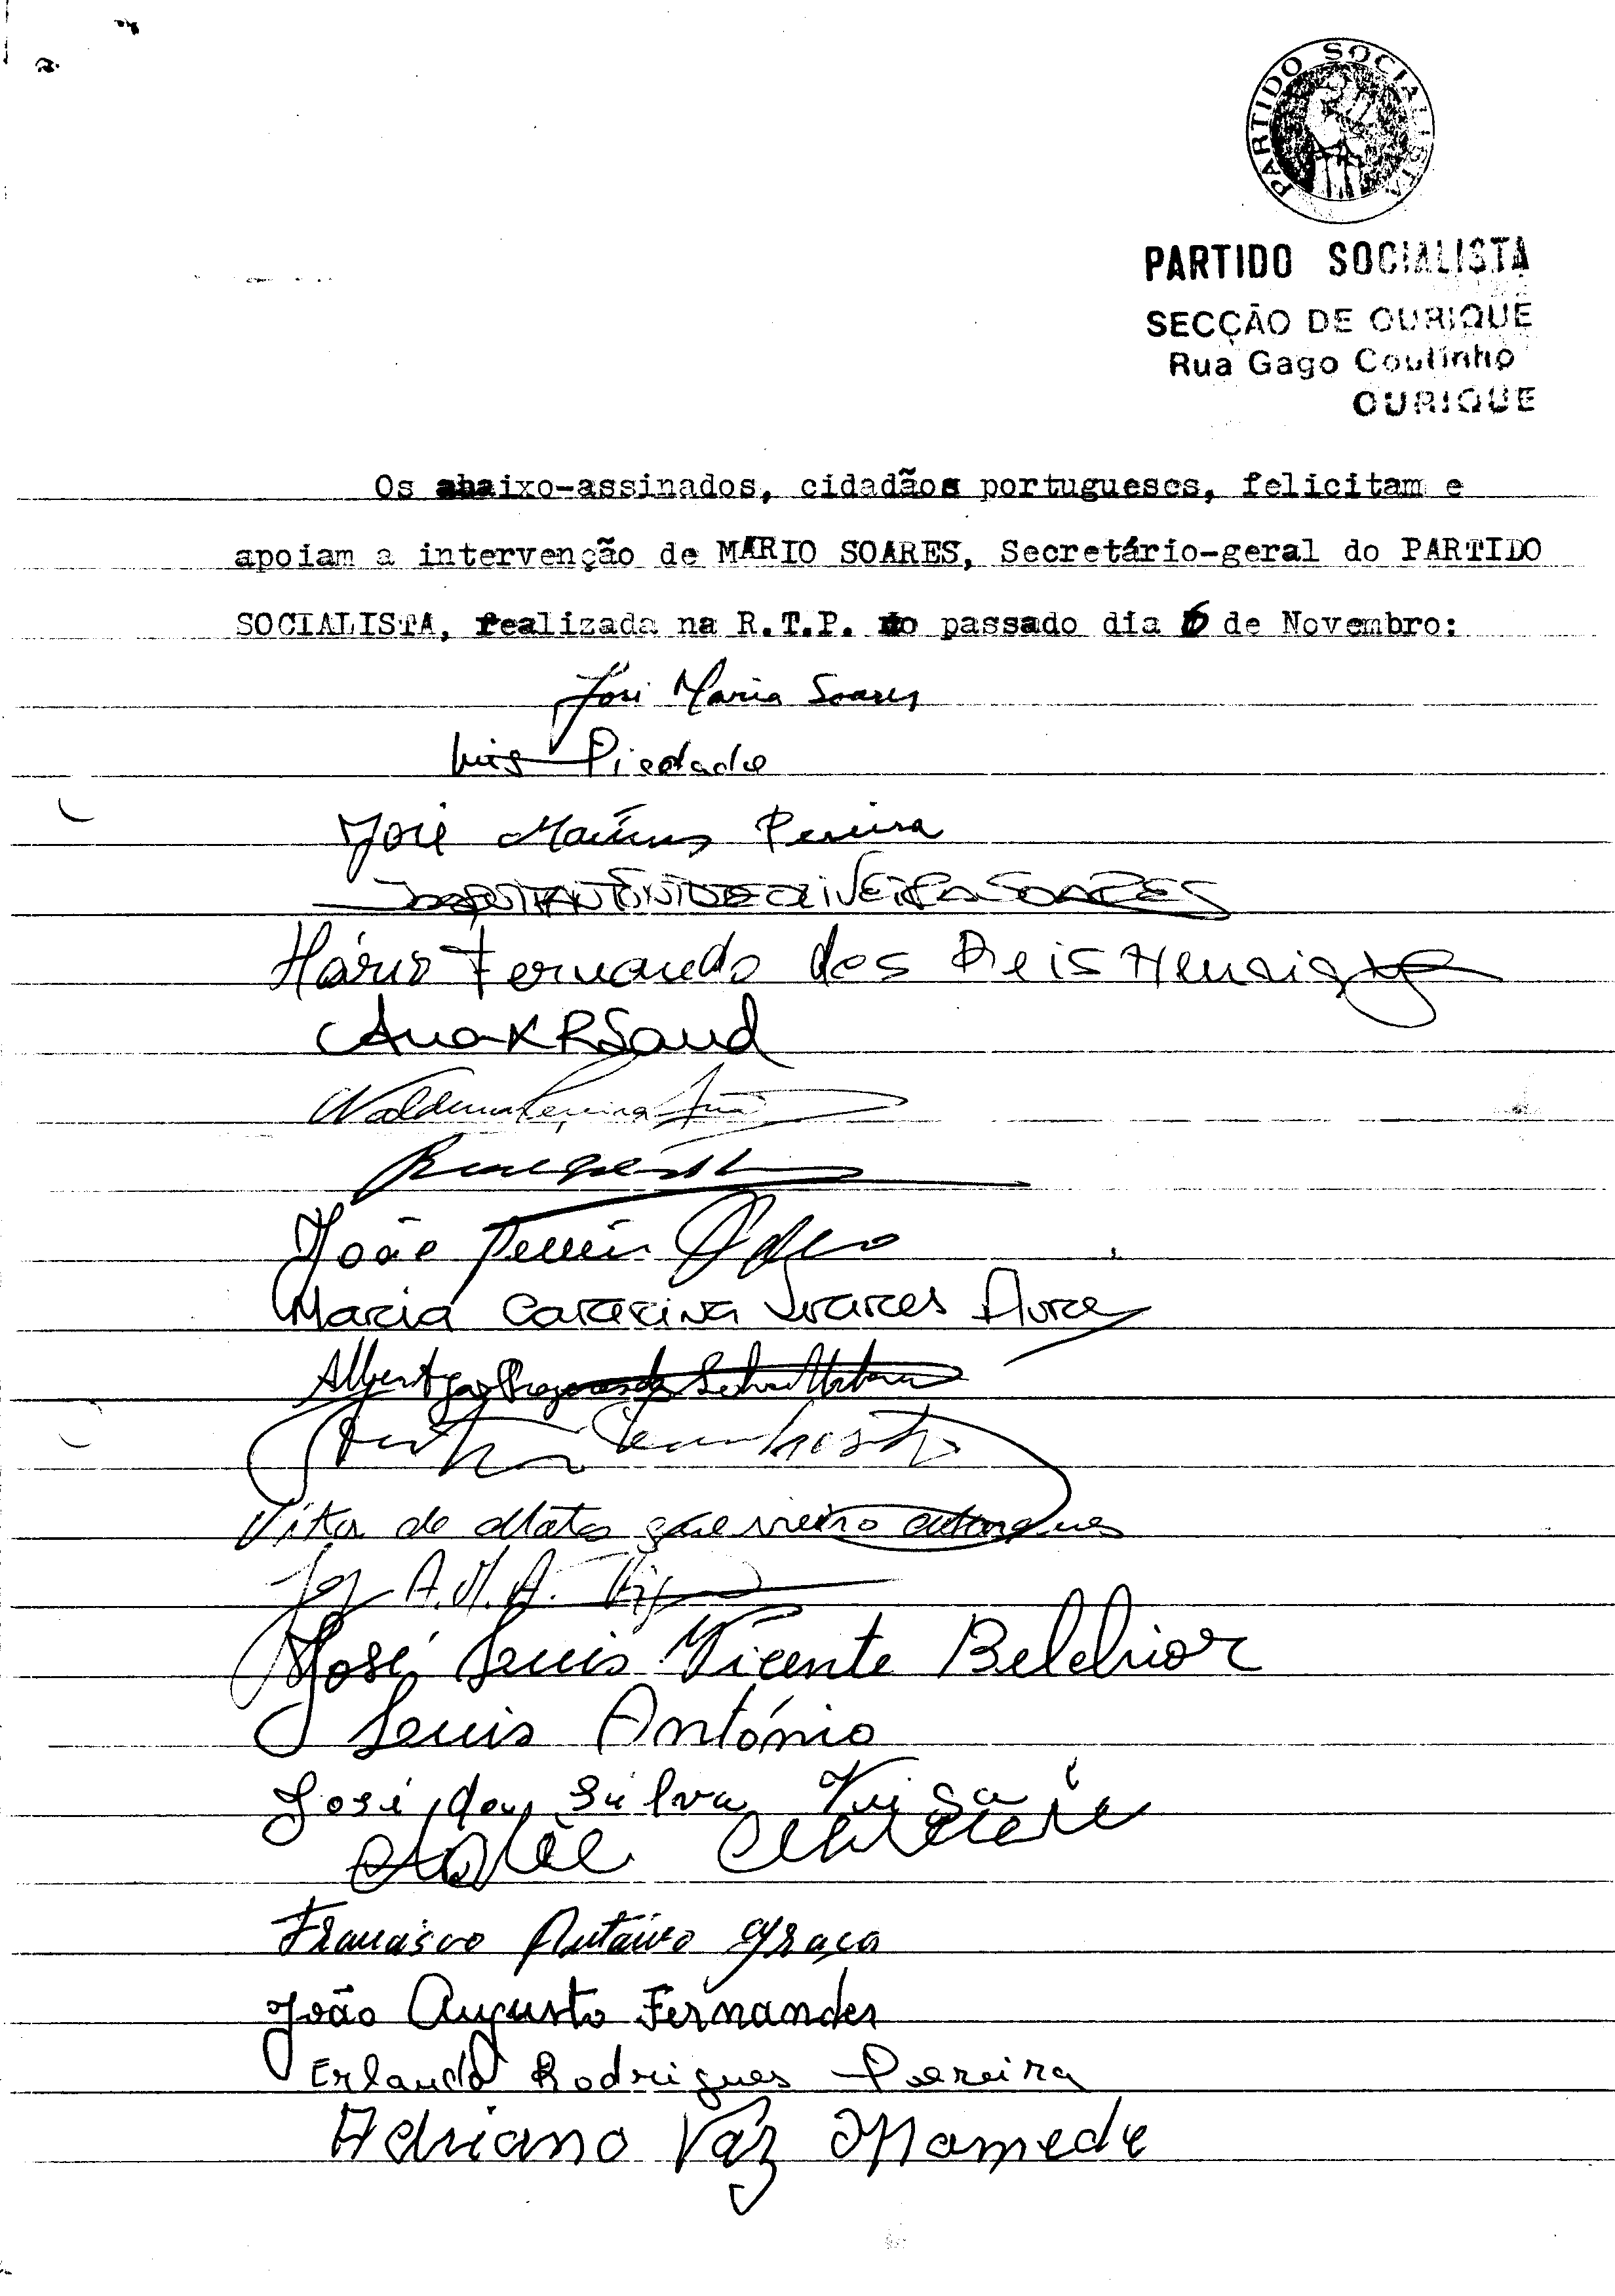 PARTIDO SOCIALISTA
PARTIDO SOCIALISTA
SECÇÃO DE OURIQUE
Rua Gago Coutinho
OURIQUE
Os abaixo-assinados, cidadãos portugueses, felicitam e
apoiam a intervenção de MÁRIO SOARES, Secretário-geral do PARTIDO
SOCIALISTA, realizada na R.T.P. no passado dia 6 de Novembro:
José Maria Soares
Luis Piedade
José Martins Pereira
ANTÓNIO OLIVEIRA SOARES
Mário Fernando dos Reis Henrique
Ana
Pereira
João
Maria Catarina
Vitor de Matos guerreiro
A. M. A.
José Luis Vicente Belchior
Luis António
José da Silva
Francisco António Graça
João Augusto Fernandes
Erlando Rodrigues Pereira
Adriano Váz Mamede